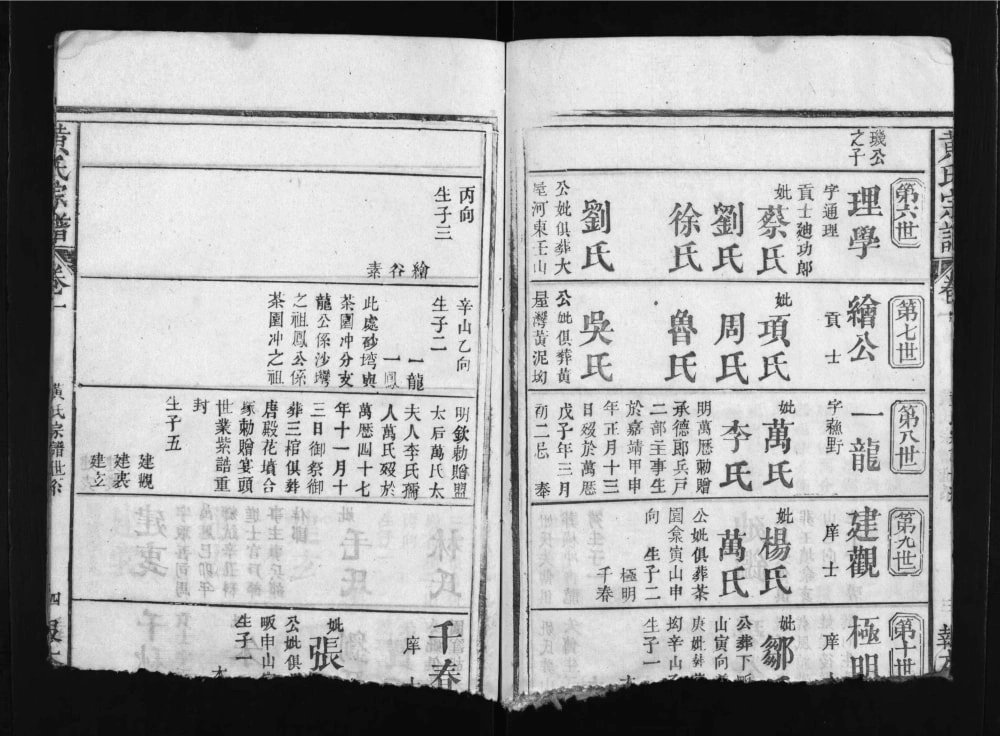 黃氏宗譜
卷
璣公
之子
第六世
理學
字通理
貢士廸功郎
妣蔡氏
劉氏
徐氏
劉氏
公妣俱葬大
屋河東壬山
第七世
繪公
貢士
妣項氏
周氏
魯氏
吳氏
公妣俱葬黃
屋灣黃泥坳
第八世
一龍
字蘓野
妣萬氏
李氏
明萬厯勅贈
承德郎兵戸
二部主事生
於嘉靖甲申
年正月十三
日歿於萬厯
戊子年三月
初二忌 奉
第九世
建觀
庠士
妣楊氏
萬氏
公妣俱葬茶
園侖寅山申
向 生子二
極明
千春
第十世
極明
庠
妣鄒
公葬下
山寅向
庚妣
坳辛山
生子一
三
黃氏宗譜
卷一
黃氏宗譜世系
四
丙向
生子三
繪
谷
素
辛山乙向
生子二
一龍
一鳳
此處砂塆與
茶園冲分支
龍公係沙塆
之祖鳳公係
茶園冲之祖
明欽勅贈盟
太后萬氏太
夫人李氏孺
人萬氏歿於
萬厯四十七
年十一月十
三日御祭御
葬三棺俱葬
唐殿花墳合
塚勅贈宴頭
世業紫誥重
封
生子五
建觀
建裘
建立
千春
庠
妣張
公妣俱
畈申山
生子一